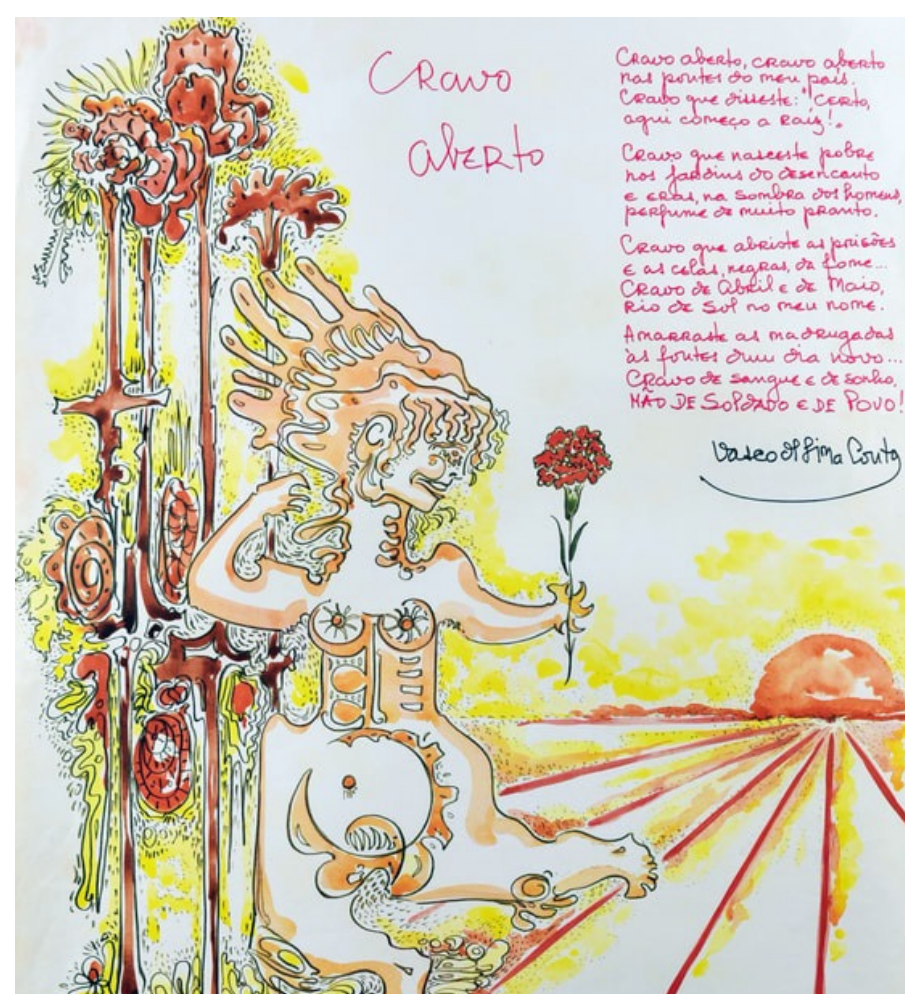 Cravo
Aberto
Cravo aberto, cravo aberto
nas pontes do meu país.
Cravo que disseste: "Certo,
aqui começo a raiz!.
Cravo que nasceste pobre
nos jardins do desencanto
e eras, na sombra dos homens,
perfume de muito pranto.
Cravo que abriste as prisões
e as celas, negras, da fome...
Cravo de Abril e de Maio,
Rio de Sol no meu nome.
Amarraste as madrugadas
às fontes dum dia novo...
Cravo de sangue e de sonho,
MÃO DE SOLDADO E DE POVO!
Vasco de Lima Couto